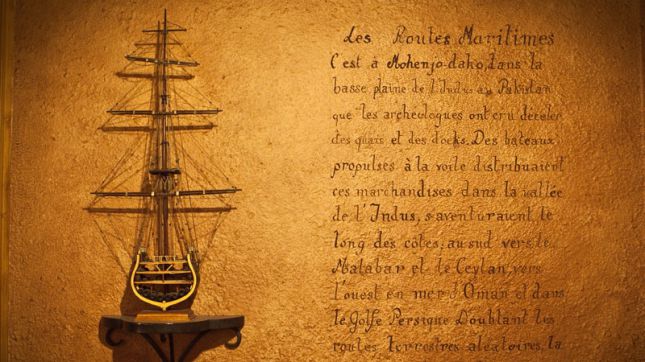 Les Routes Maritimes
C'est à Mohenjo-dako, dans la
basse plaine de l'Indus au Pakistan
que les archeologues ont cru déceler
des quais et des docks. Des bateaux
propulses à la voile distribuaient
ces marchandises dans la vallée
de l'Indus, s'aventuraient le
long des côtes; au sud vers le
Malabar et le Ceylan, vers
l'ouest en mer d'Oman et dans
le Golfe Persique Doublant les
routes terrestres aléatoires, la